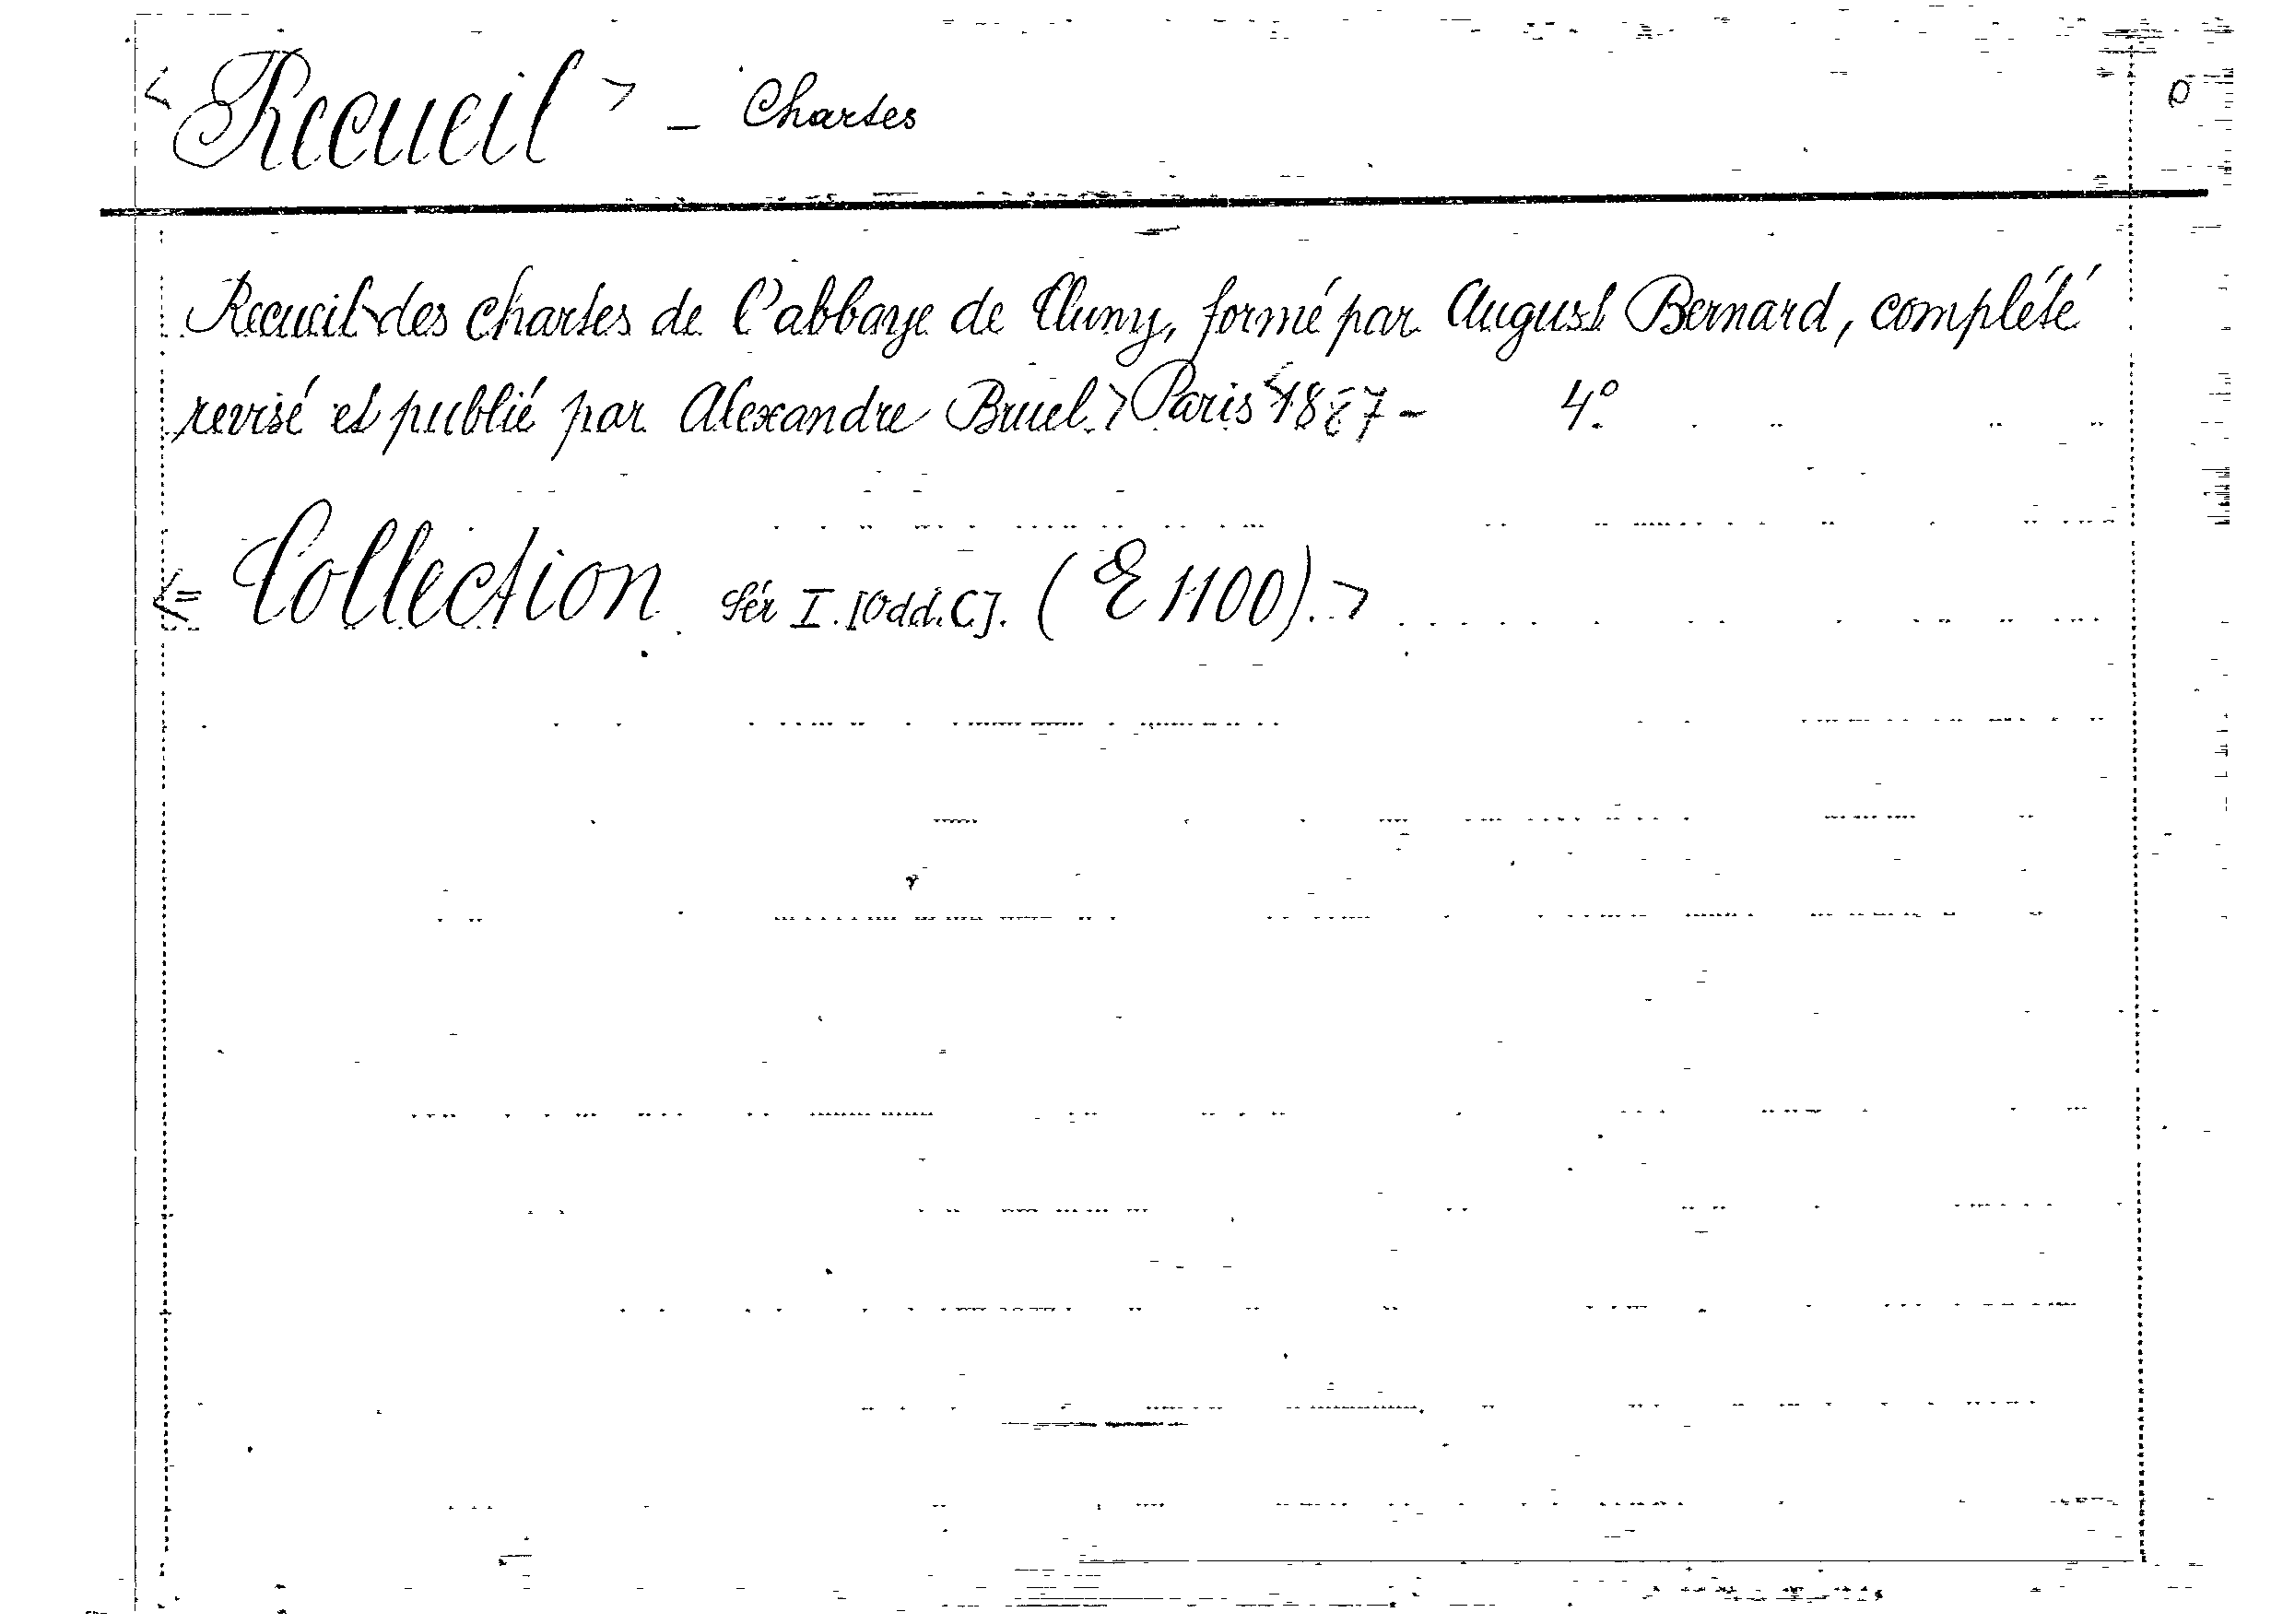 < Recueil > - Chartes
Recueil des chartes de l'abbaye de Cluny, formé par August Bernard, complété
revisé et publié par Alexandre Bruel. > Paris < 1887 - 4º
<= Collection Sér I. [Odd. C]. (E 1100). >